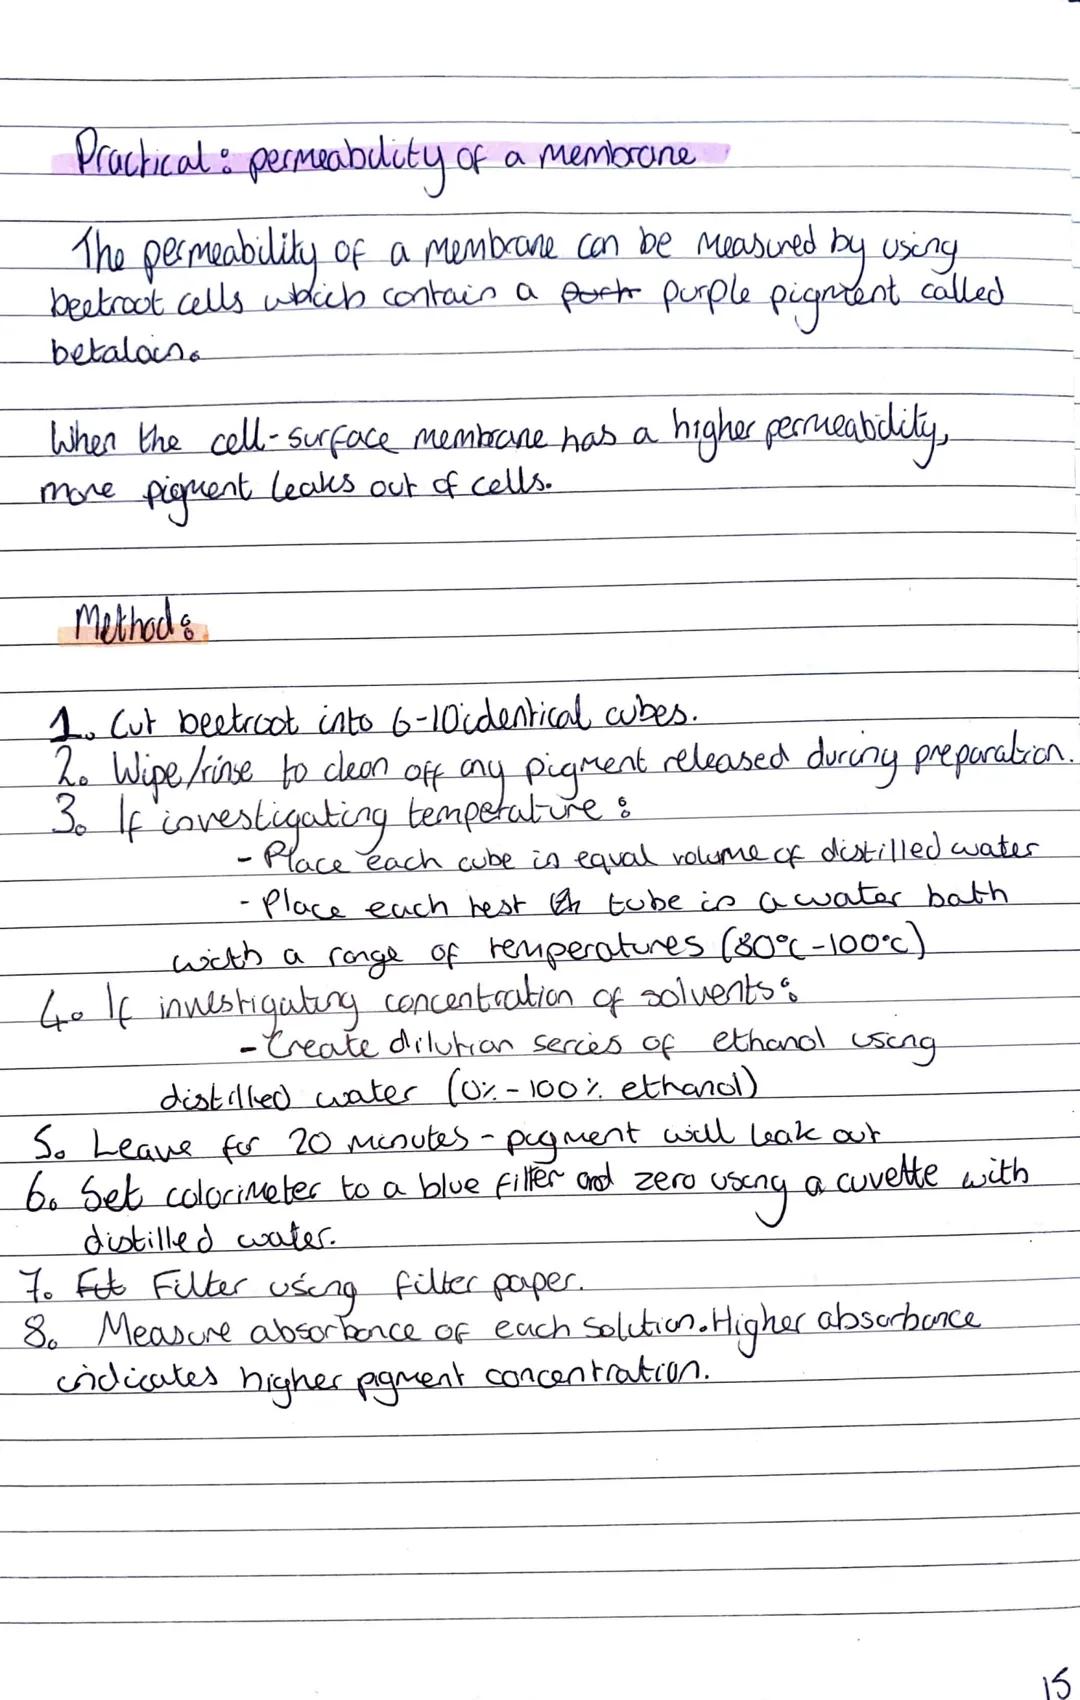 Practical: permeability of a membrane
The permeability of a membrane can be measured by using
beetroot cells which contain a purple pigment called
betalain.
When the cell-surface membrane has a higher permeability,
more pigment leaks out of cells.
Method:
1. Cut beetroot into 6-10 identical cubes.
2. Wipe/rinse to clean off any pigment released during preparation.
3. If investigating temperature:
- Place each cube in equal volume of distilled water
- Place each test tube in a water bath
with a range of temperatures (80°C-100°C)
4. If investigating concentration of solvents:
- Create dilution series of ethanol using
distilled water (0%-100% ethanol)
5. Leave for 20 minutes - pigment will leak out
6. Set colorimeter to a blue filter and zero using a cuvette with
distilled water.
7. Filter using filter paper.
8. Measure absorbance of each solution. Higher absorbance
indicates higher pigment concentration.
15